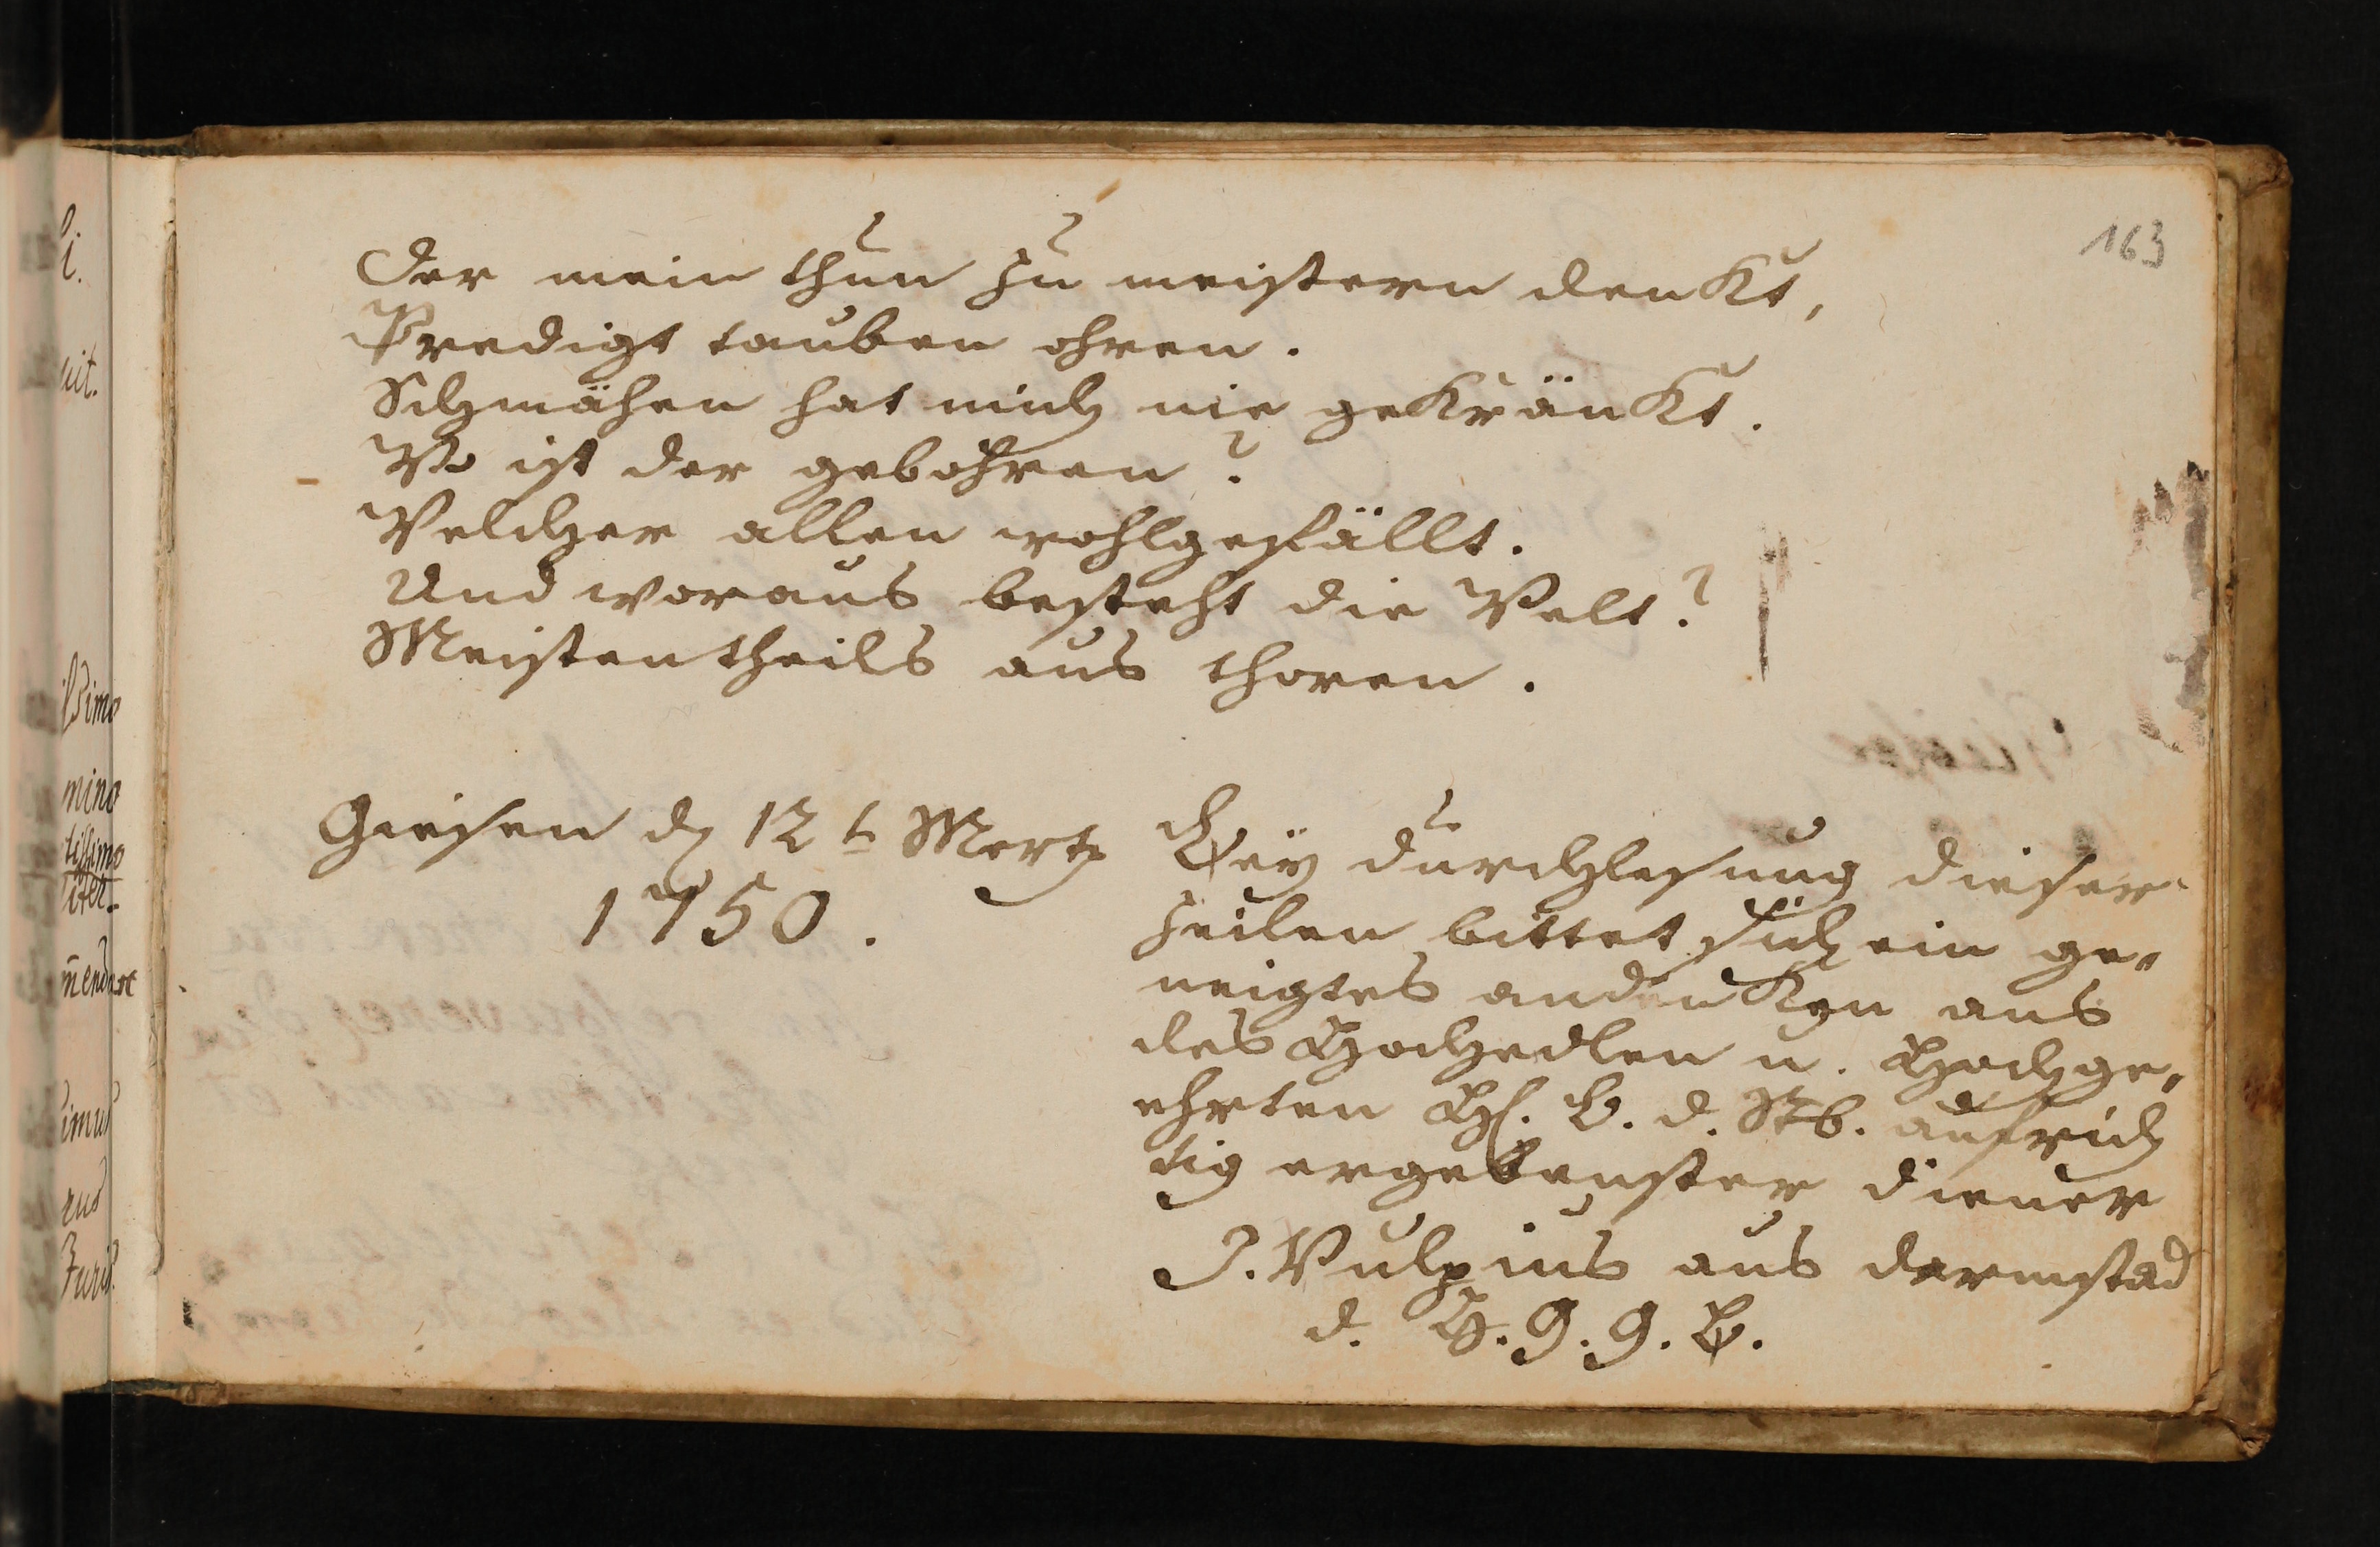 163
Der mein thun zu meistern denkt,
Predigt tauben ohren.
Schmähen hat mich nie gekränkt.
Wo ist der gebohren?
Welcher allen wohlgefällt.
Und woraus besteht die Welt?
Meistentheils aus thoren.
Giesen d 12t Mertz
1750.
Bey durchlesung dieser
zeilen bittet sich ein ge-
neigtes andenken aus
des Hochedlen u. Hochge-
ehrten H. B. d. Stb. aufrich
tig ergebenster diener
J. Vulpius aus darmstad
d. H. G. G. B.